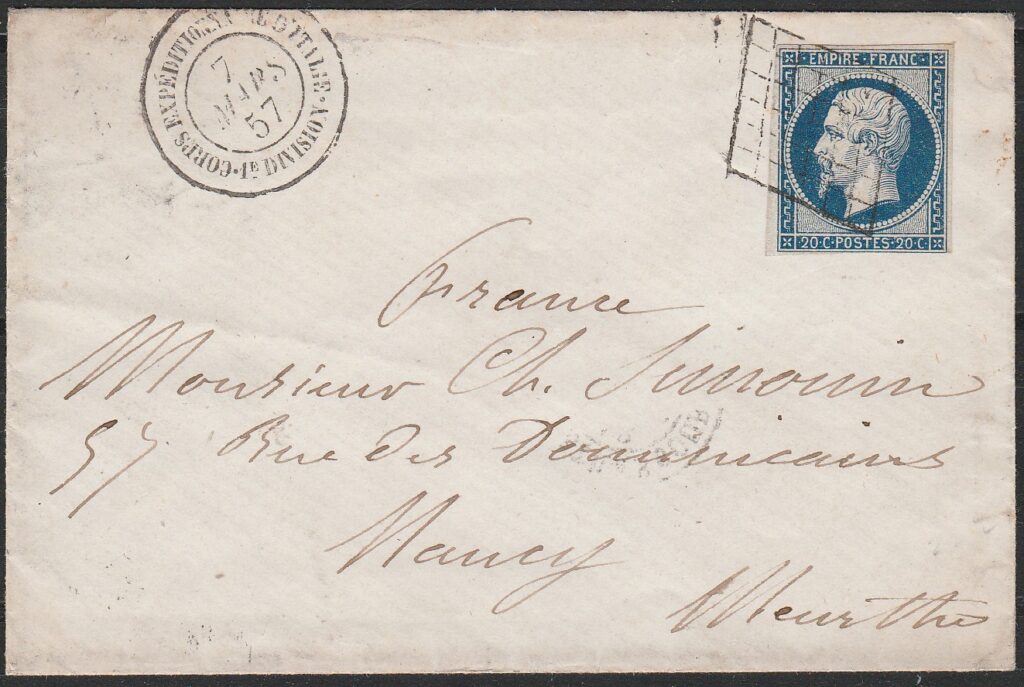 CORPS EXPÉDITIONNAIRE D'ITALIE · 1E DIVISION ·
7
MARS
57
EMPIRE · FRANC ·
· 20 · C · POSTES · 20 · C ·
France
Monsieur Ch. Simonin
57 Rue des Dominicains
Nancy
Meurthe